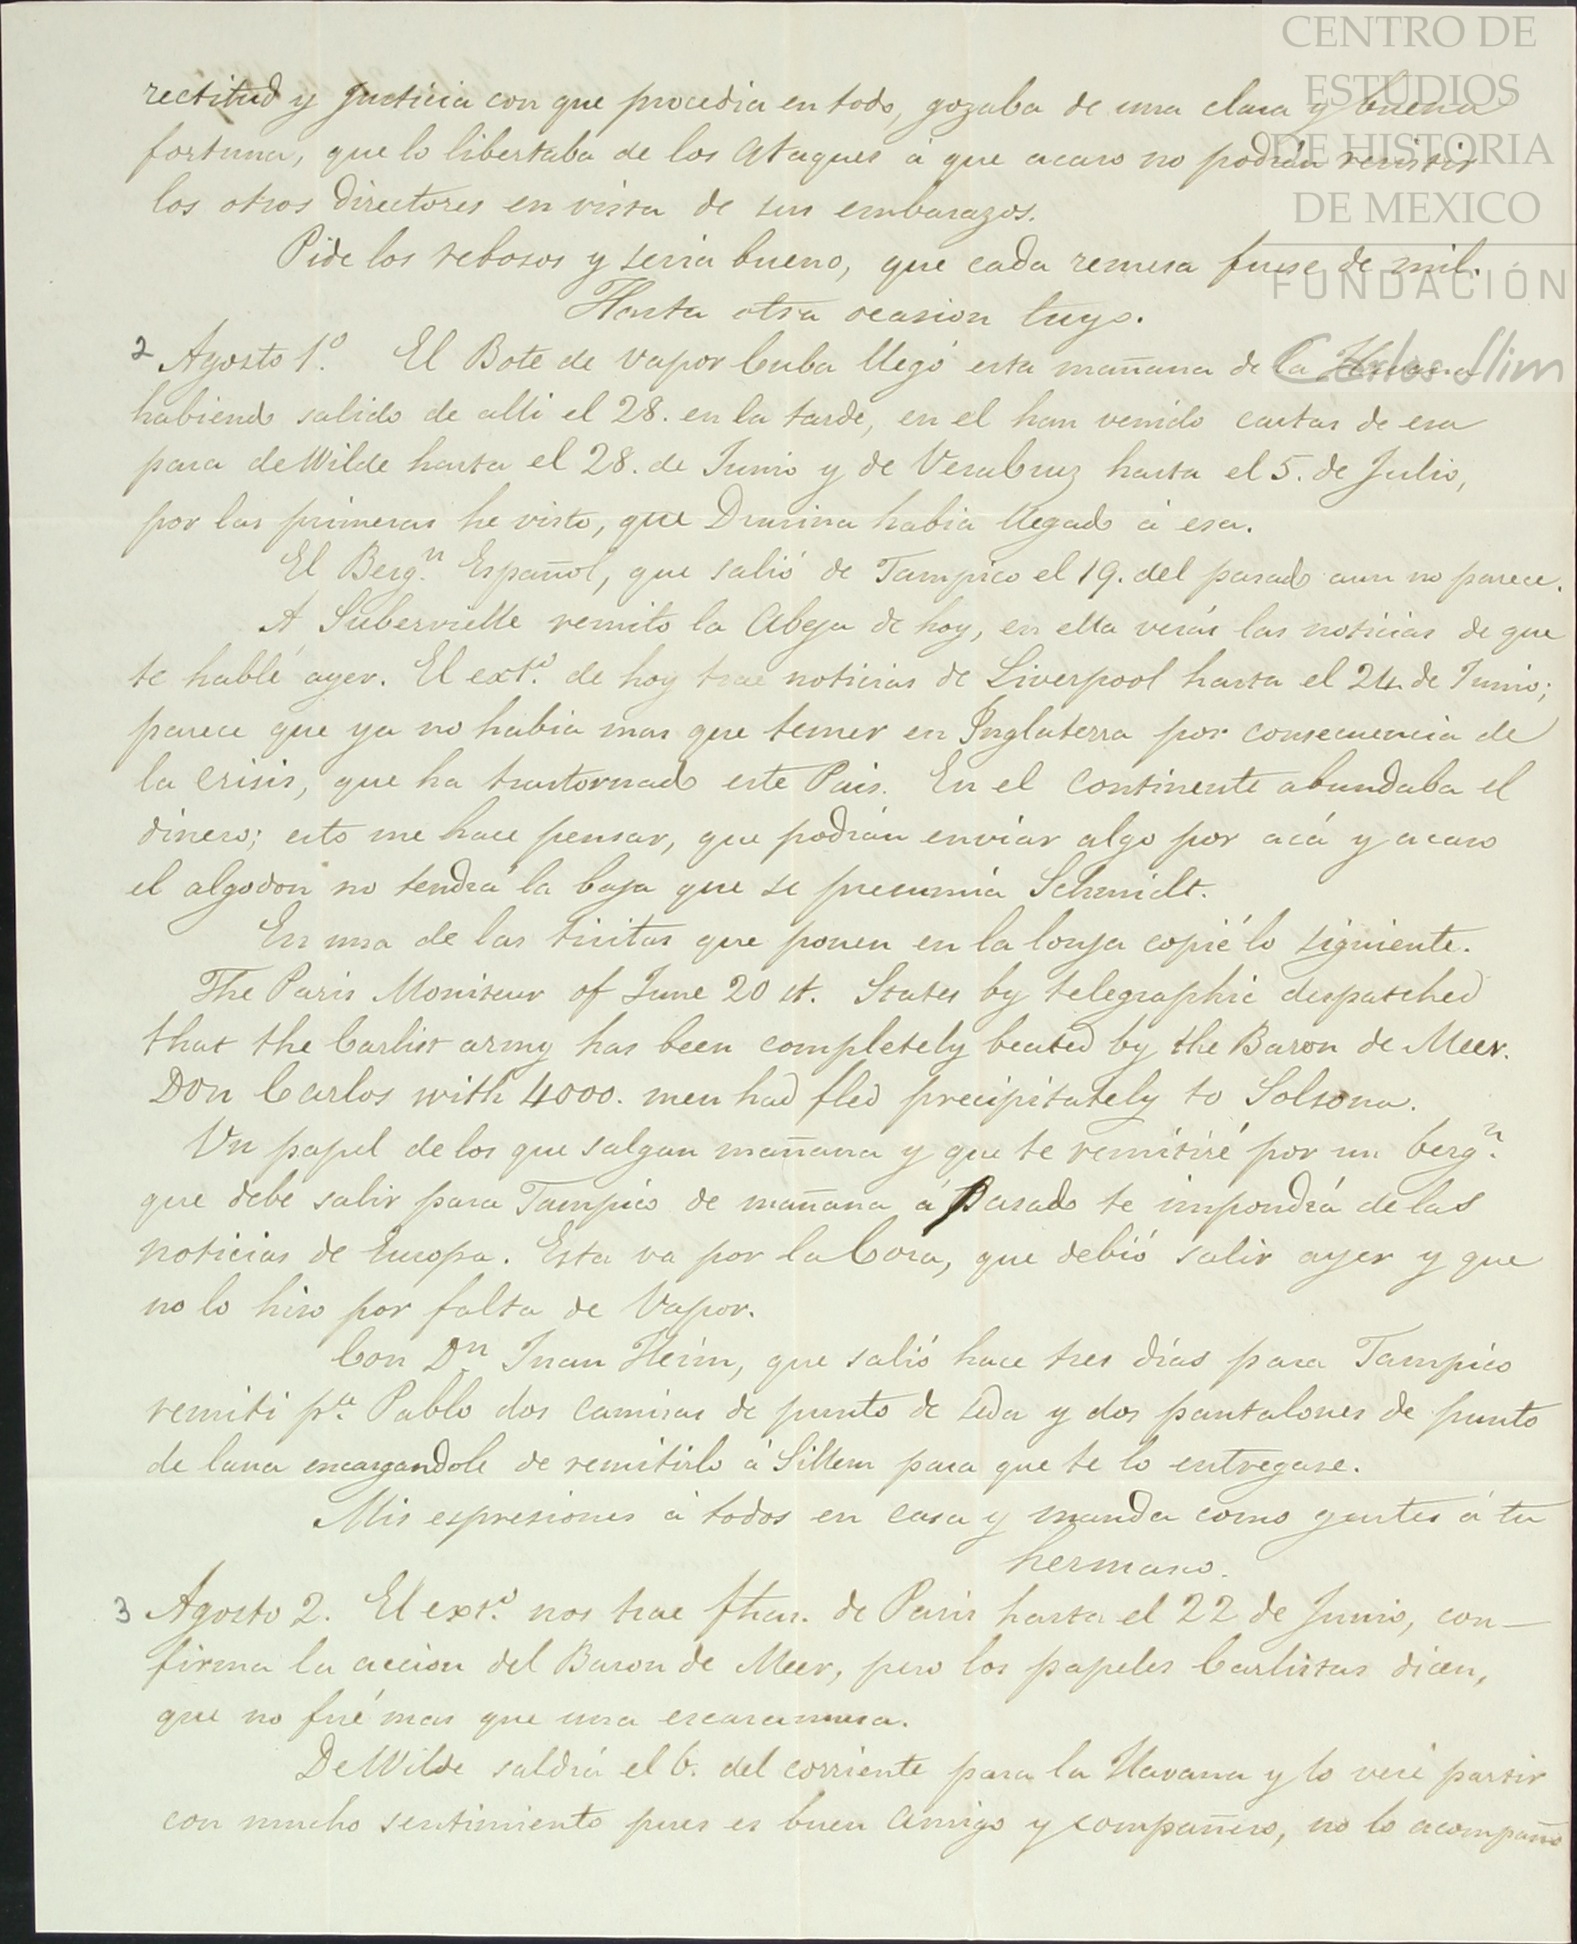 CENTRO DE
ESTUDIOS
DE HISTORIA
DE MEXICO
FUNDACIÓN
Carlos Slim
rectitud y justicia con que procedia en todo, gozaba de una clara y buena
fortuna, que lo libertaba de los ataques á que acaso no podrán resistir
los otros Directores en vista de sus embarazos.
Pide los rebosos y seria bueno, que cada remesa fuese de mil.
Hasta otra ocasion tuyo.
2 Agosto 1º. El Bote de vapor Cuba llegó esta mañana de la Havana
habiendo salido de alli el 28. en la tarde, en el han venido cartas de esa
para deWilde hasta el 28. de Junio y de VeraCruz hasta el 5. de Julio,
por las primeras he visto, que Drusina habia llegado á esa.
El Bergn. Español, que salió de Tampico el 19. del pasado aun no parece.
A Subervielle remito la Abeja de hoy, en ella verás las noticias de que
te hablé ayer. El exto. de hoy trae noticias de Liverpool hasta el 24. de Junio;
parece que ya no habia mas que temer en Inglaterra por consecuencia de
la crisis, que ha trastornado este Pais. En el continente abundaba el
dinero; esto me hace pensar, que podrán enviar algo por acá y acaso
el algodon no tendrá la baja que se presumia Schmidt.
En una de las tiritas que ponen en la lonja copié lo siguiente.
The Paris Moniteur of June 20 st. States by telegraphic despatched
that the Carlist army has been completely beated by the Baron de Meer.
Don Carlos with 4000. men had fled precipitately to Solsona.
Un papel de los que salgan mañana y que te remitiré por un bergn.
que debe salir para Tampico de mañana á Pasado te impondrá de las
noticias de Europa. Esta va por la Cora, que debió salir ayer y que
no lo hiso por falta de Vapor.
Con Dn Juan Heim, que salió hace tres días para Tampico
remiti pa. Pablo dos camisas de punto de seda y dos pantalones de punto
de lana encargandole de remitirlo á Sillem para que te lo entregase.
Mis espresiones á todos en casa y manda como gustes á tu
hermano.
3 Agosto 2. El exto. nos trae fhas. de Paris hasta el 22 de Junio, con-
firma la accion del Baron de Meer, pero los papeles Carlistas dicen,
que no fué mas que una escaramusa.
DeWilde saldrá el 6. del corriente para la Havana y lo veré partir
con mucho sentimiento pues es buen amigo y compañero, no lo acompaño